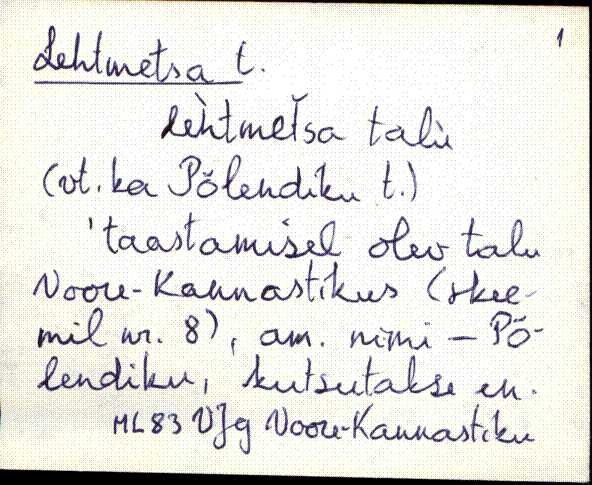 1
Lehtmetsa t.
Lèhtmeťsa talù
(vt. ka Põlendiku t.)
'taastamisel olev talu
Noore-Kannastikus (skee-
mil nr. 8), am. nimi – Põ-
lendiku, kutsutakse en.
ML 83 VJg Noore-Kannastiku